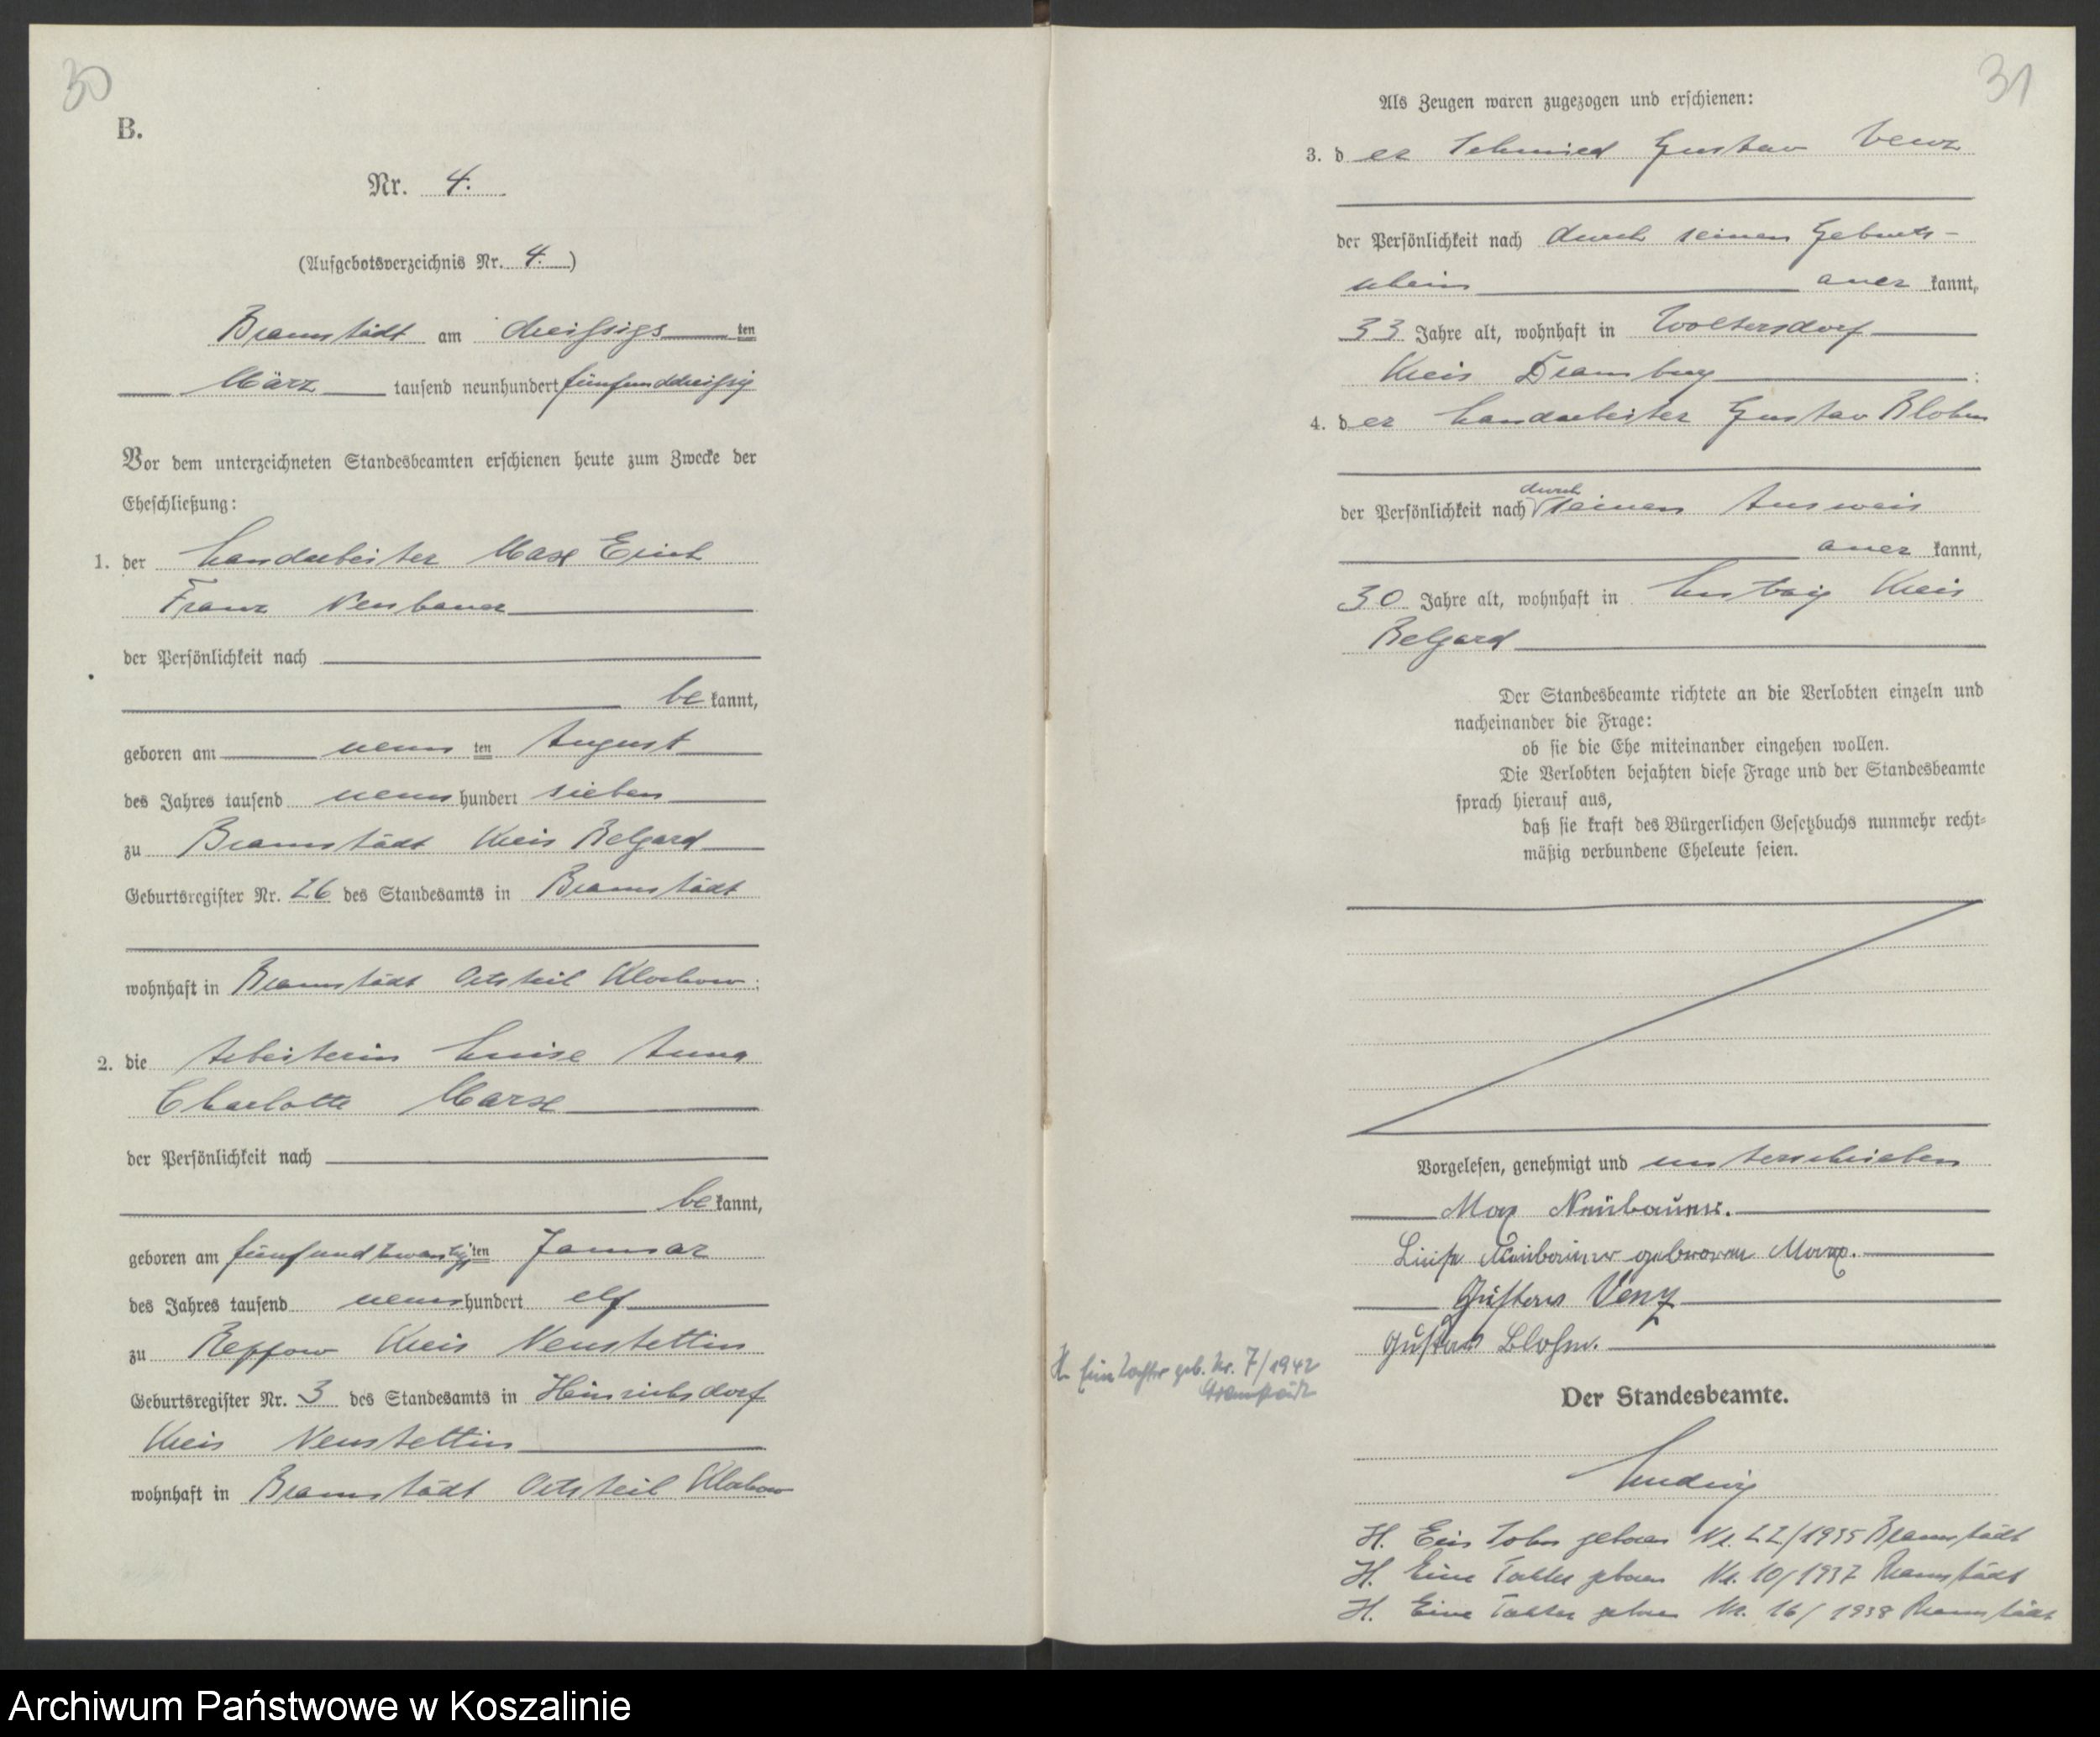 30
B.
Nr. 4.
(Aufgebotsverzeichnis Nr. 4.)
Bramstädt am dreissigs ten
März tausend neunhundert fünfunddreissig
Vor dem unterzeichneten Standesbeamten erschienen heute zum Zwecke der
Eheschließung:
1. der Landarbeiter Max Erich
Franz Neubauer
der Persönlichkeit nach
be kannt,
geboren am neun ten August
des Jahres tausend neun hundert sieben
zu Bramstädt Kreis Belgard
Geburtsregister Nr. 26 des Standesamts in Bramstädt
wohnhaft in Bramstädt Ortsteil Klockow.
2. die Arbeiterin Luise Anna
Charlotte Marx
der Persönlichkeit nach
be kannt,
geboren am fünfundzwanzigs ten Januar
des Jahres tausend neun hundert elf
zu Reppow Kreis Neustettin
Geburtsregister Nr. 3 des Standesamts in Heinrichsdorf
Kreis Neustettin
wohnhaft in Bramstädt Ortsteil Klockow
31
Als Zeugen waren zugezogen und erschienen:
3. d er Schmied Gustav Venz
der Persönlichkeit nach durch seinen Geburts-
schein aner kannt,
33 Jahre alt, wohnhaft in Woltersdorf
Kreis Dramburg ;
4. d er Landarbeiter Gustav Blohm
der Persönlichkeit nach durch seinen Ausweis
aner kannt,
30 Jahre alt, wohnhaft in Lutzig Kreis
Belgard
Der Standesbeamte richtete an die Verlobten einzeln und
nacheinander die Frage:
ob sie die Ehe miteinander eingehen wollen.
Die Verlobten bejahten diese Frage und der Standesbeamte
sprach hierauf aus,
daß sie kraft des Bürgerlichen Gesetzbuchs nunmehr recht-
mäßig verbundene Eheleute seien.
Vorgelesen, genehmigt und unterschrieben
Max Neubauer.
Luise Neubauer geborene Marx.
Gustav Venz
Gustav Blohm.
H. Eine Tochter geb. Nr. 7/1942
Bramstädt
Der Standesbeamte.
Ludwig
H. Ein Sohn geboren Nr. 22/1935 Bramstädt
H. Eine Tochter geboren Nr. 10/1937 Bramstädt
H. Eine Tochter geboren Nr. 16/1938 Bramstädt
Archiwum Państwowe w Koszalinie